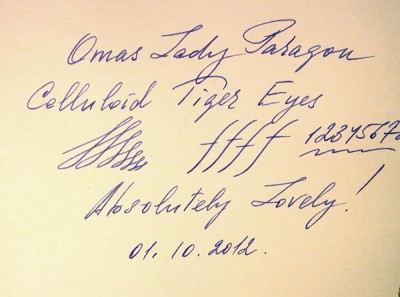 Omas Lady Paragon
Celluloid Tiger Eyes
ffff 1234567
Absolutely Lovely!
01.10.2012.